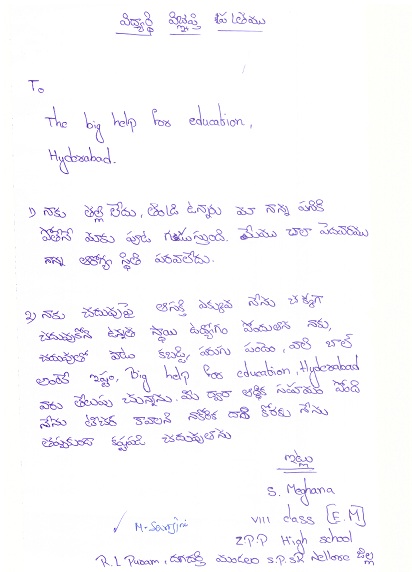 విద్యార్థి విజ్ఞప్తి పత్రము
To
The big help for education,
Hyderabad.
1) నాకు తల్లి లేదు, తండ్రి ఉన్నారు మా నాన్న పనికి
పోతేనే మాకు పూట గడుస్తుంది. మేము చాలా పేదవారము
నాన్న ఆరోగ్య స్థితి పరవాలేదు.
2) నాకు చదువుపై ఆసక్తి ఎక్కువ నేను చక్కగా
చదువుకొని ఉన్నత స్థాయి ఉద్యోగం పొందుతాను నాకు,
చదువుతో పాటు కబడ్డీ, పరుగు పందెం, వాలీ బాల్
అంటే ఇష్టం, Big help for education, Hyderabad
వారు తెలుపు చున్నాను. మీ ద్వారా ఆర్థిక సహాయం పొంది
నేను టీచర్ కావాలని నాకోరిక దాని కొరకు నేను
తప్పకుండా కష్టపడి చదువుతాను
ఇట్లు
S. Meghana
VIII class [E.M]
Z.P.P High school
R.L Puram, దగదర్తి మండలం S.P.S.R Nellore జిల్లా
M. Sarojini